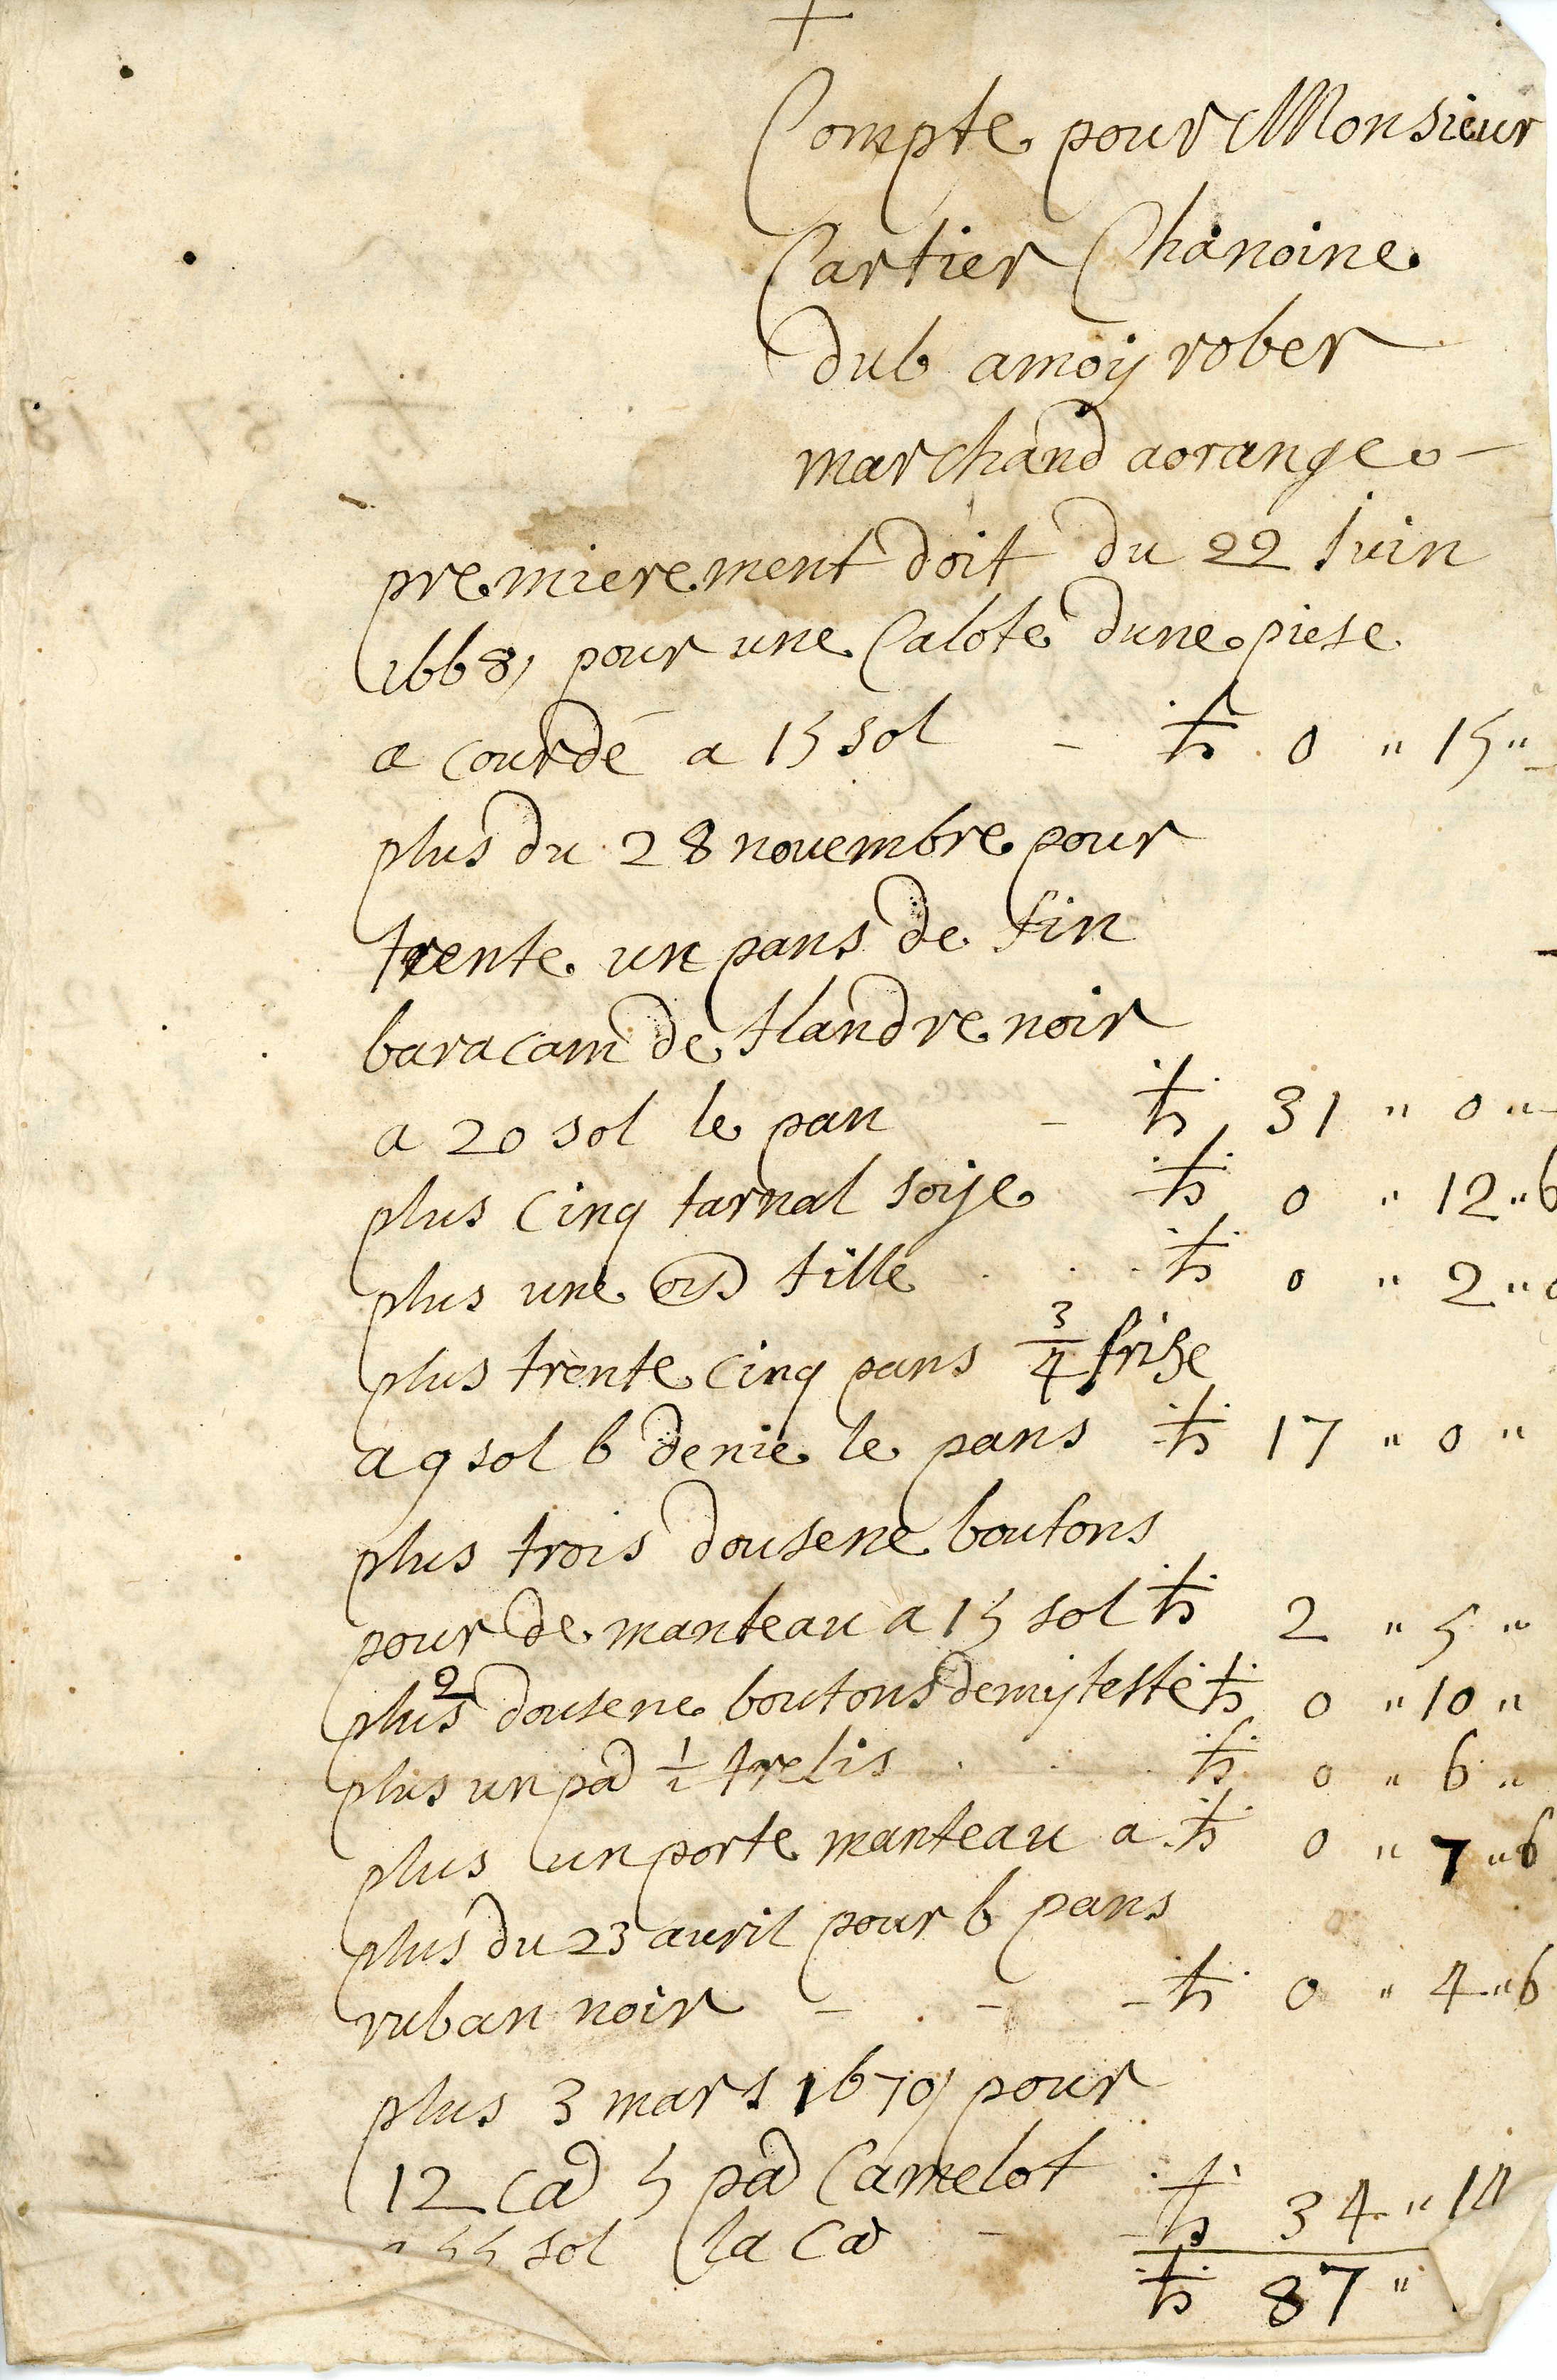 +
Compte pour Monsieur
Cartier Chanoine
dub amoy rober
marchand aorange
premierement doit du 22 Juin
1668, pour une Calote dune piese
a courdé a 15 sol – ₶ 0 " 15 "
plus du 28 novembre pour
trente un pans de fin
baracam de flandre noir
a 20 sol le pan – ₶ 31 " 0 "
plus cinq tarnal soije ₶ 0 " 12 " 6
plus une fille ₶ 0 " 2 " 0
plus trente cinq pans 3/4 frize
a 9 sol 6 denie le pans ₶ 17 " 0 "
plus trois dousene boutons
pour de manteau a 15 sol ₶ 2 " 5 "
plus 2 dousene boutons demy teste ₶ 0 " 10 "
plus un pa 1/2 trelis ₶ 0 " 6 "
plus un porte manteau a ₶ 0 " 7 " 6
plus du 23 auril pour 6 pans
ruban noir – – – ₶ 0 " 4 " 6
plus 3 mars 1670, pour
12 Ca 5 pa Camelot
a 55 sol la Ca – – ₶ 34 " 14
₶ 87 "